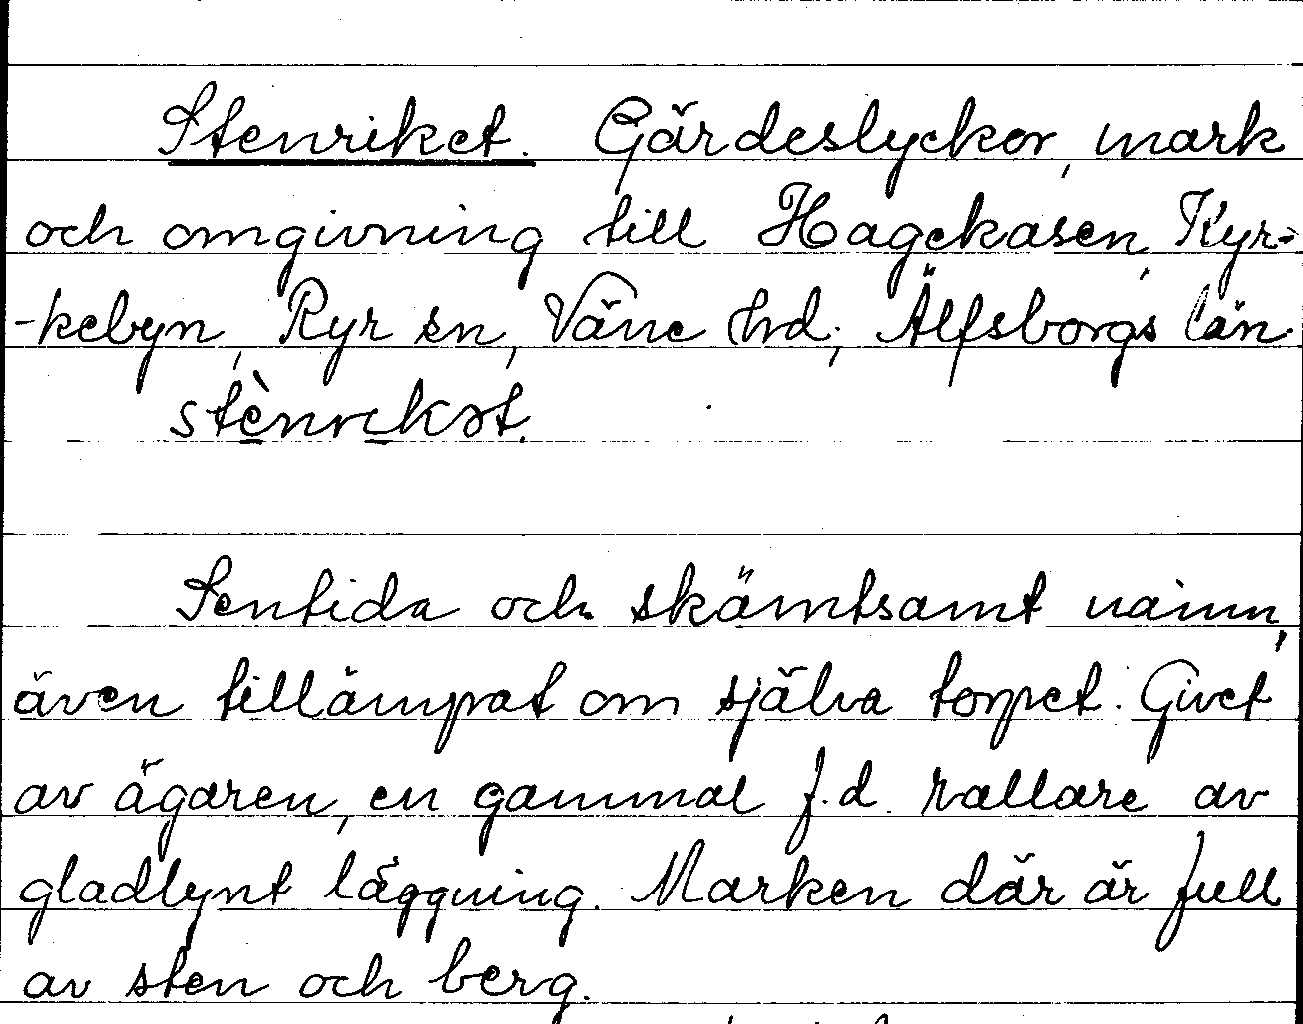 Stenriket. Gärdeslyckor, mark
och omgivning till Hagekasen, Kyr-
-kebyn, Ryr sn, Väne hd; Älfsborgs län.
stènrikət.
Sentida och skämtsamt namn,
även tillämpat om själva torpet. Givet
av ägaren, en gammal f.d. rallare av
gladlynt läggning. Marken där är full
av sten och berg.